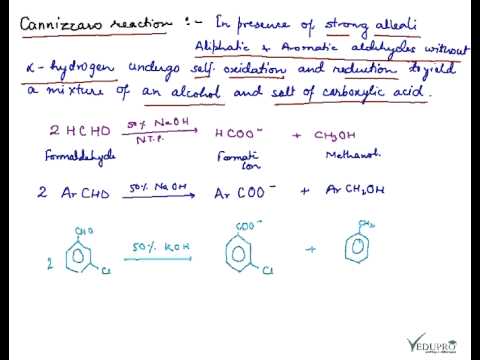 Cannizzaro reaction :- In presence of strong alkali
Aliphatic & Aromatic aldehydes without
α-hydrogen undergo self oxidation and reduction to yield
a mixture of an alcohol and salt of carboxylic acid.
2 HCHO 50% NaOH N.T.P. HCOO⁻ + CH₃OH
Formaldehyde Formate Ion Methanol
2 ArCHO 50% NaOH ArCOO⁻ + ArCH₂OH
CHO COO⁻ CH₂
2 Cl 50% KOH Cl +
VEDUPRO